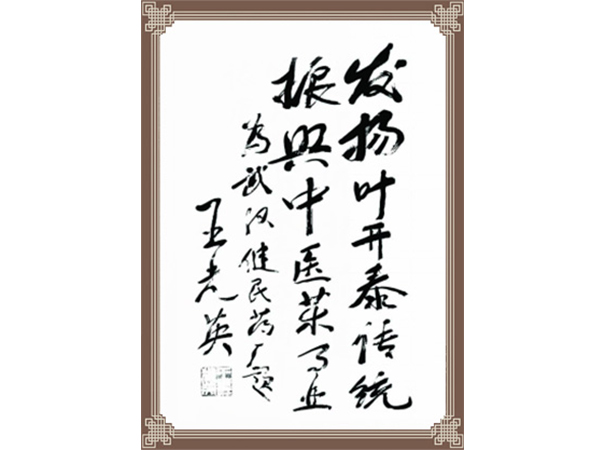 发扬叶开泰传统
振興中医药事业
為武汉健民药厂题
王光英